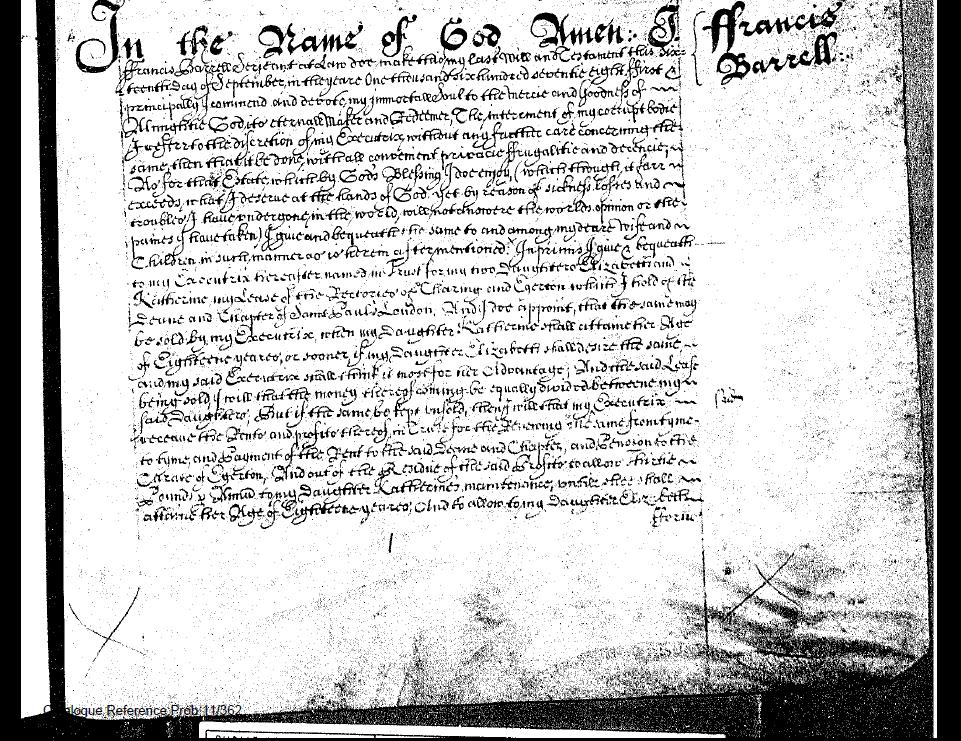 In the Name of God Amen: I
ffrancis
Barrell:
ffrancis Barrell Serjeant at Law doe make this my last Will and Testament this Six=
teenth day of September, in the yeare One thousand six hundred seventie eight, ffirst &
principally I commend and devote my immortall Soul to the Mercie and goodness of
Almightie God, its eternall Maker and Redeemer, The interment of my corrupt bodie
I referr to the discretion of my Executrix, without any further care concerning the
same, then that it be done, with all convenient privacie ffrugalitie and decencie,
As for that Estate, which by Gods Blessing I doe enjoy, (which though, it farr
exceeds, what I deserve at the hands of God, yet by reason of sickness losses and
troubles I have undergone, in the world, will not answere the worlds opinion or the
paines I have taken) I give and bequeath the same to and among my deare Wife and
Children in such manner as is herein aftermentioned. Inprimis I give & bequeath
to my Executrix hereafter named in Trust for my two Daughters Elizabeth and
Katherine, my Lease of the Rectories of Charing and Egerton which I hold of the
Deane and Chapter of Saint Pauls London, And I doe appoint, that the same may
be sold by my Executrix, when my daughter Katherine shall attaine her Age
of Eighteene yeares, or sooner, if my Daughter Elizabeth shall desire the same
and my said Executrix shall think it most for her Advantage; And the said Lease
being sold I will that the money thereof coming be equally divided betweene my
said Daughters; But if the same be kept unsold, then I will that my Executrix
receave the Rents and profits thereof, in Trust for the Renewing the same from tyme
said
to tyme, and Payment of the Rent to the said Deane and Chapter, and Pension to the
Curate of Egerton, And out of the Residue of the said Profits to allow Thirtie
Pounds p Annum to my Daughter Katherines maintenance, untill shee shall
attaine her Age of Eighteene yeares; And to allow to my daughter Elizabeth
ffortie
Catalogue Reference:Prob 11/362